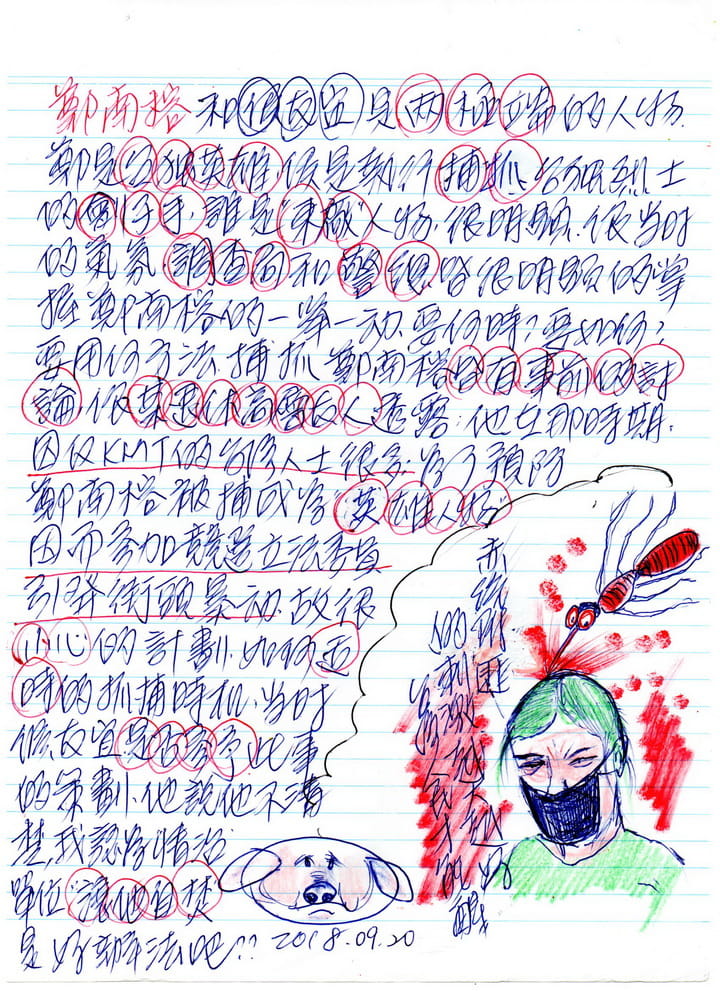 鄭南榕和侯友宜是两極端的人物.
鄭是台独英雄,侯是執行捕抓台独烈士
的劊子手,誰是"東廠"人物.很明顯.很当时
的氣氛,調查局和警總.皆很明顯的掌
握鄭南榕的一举一动.要何時?要如何?
要用何方法.捕抓鄭南榕皆有事前的討
論.依某退休高層友人.透露:他在那時期.
因反KMT的台獨人士很多.為了預防
鄭南榕被捕成為"英雄人物"
因而参加競選立法委員
引發街頭暴动.故很
小心的計劃.如何适
時的抓捕時机.当时
侯友宜是否参予此事
的策劃.他說他不清
楚,我認為情治
單位"讓他自焚"
是好辦法吧??
2018.09.20